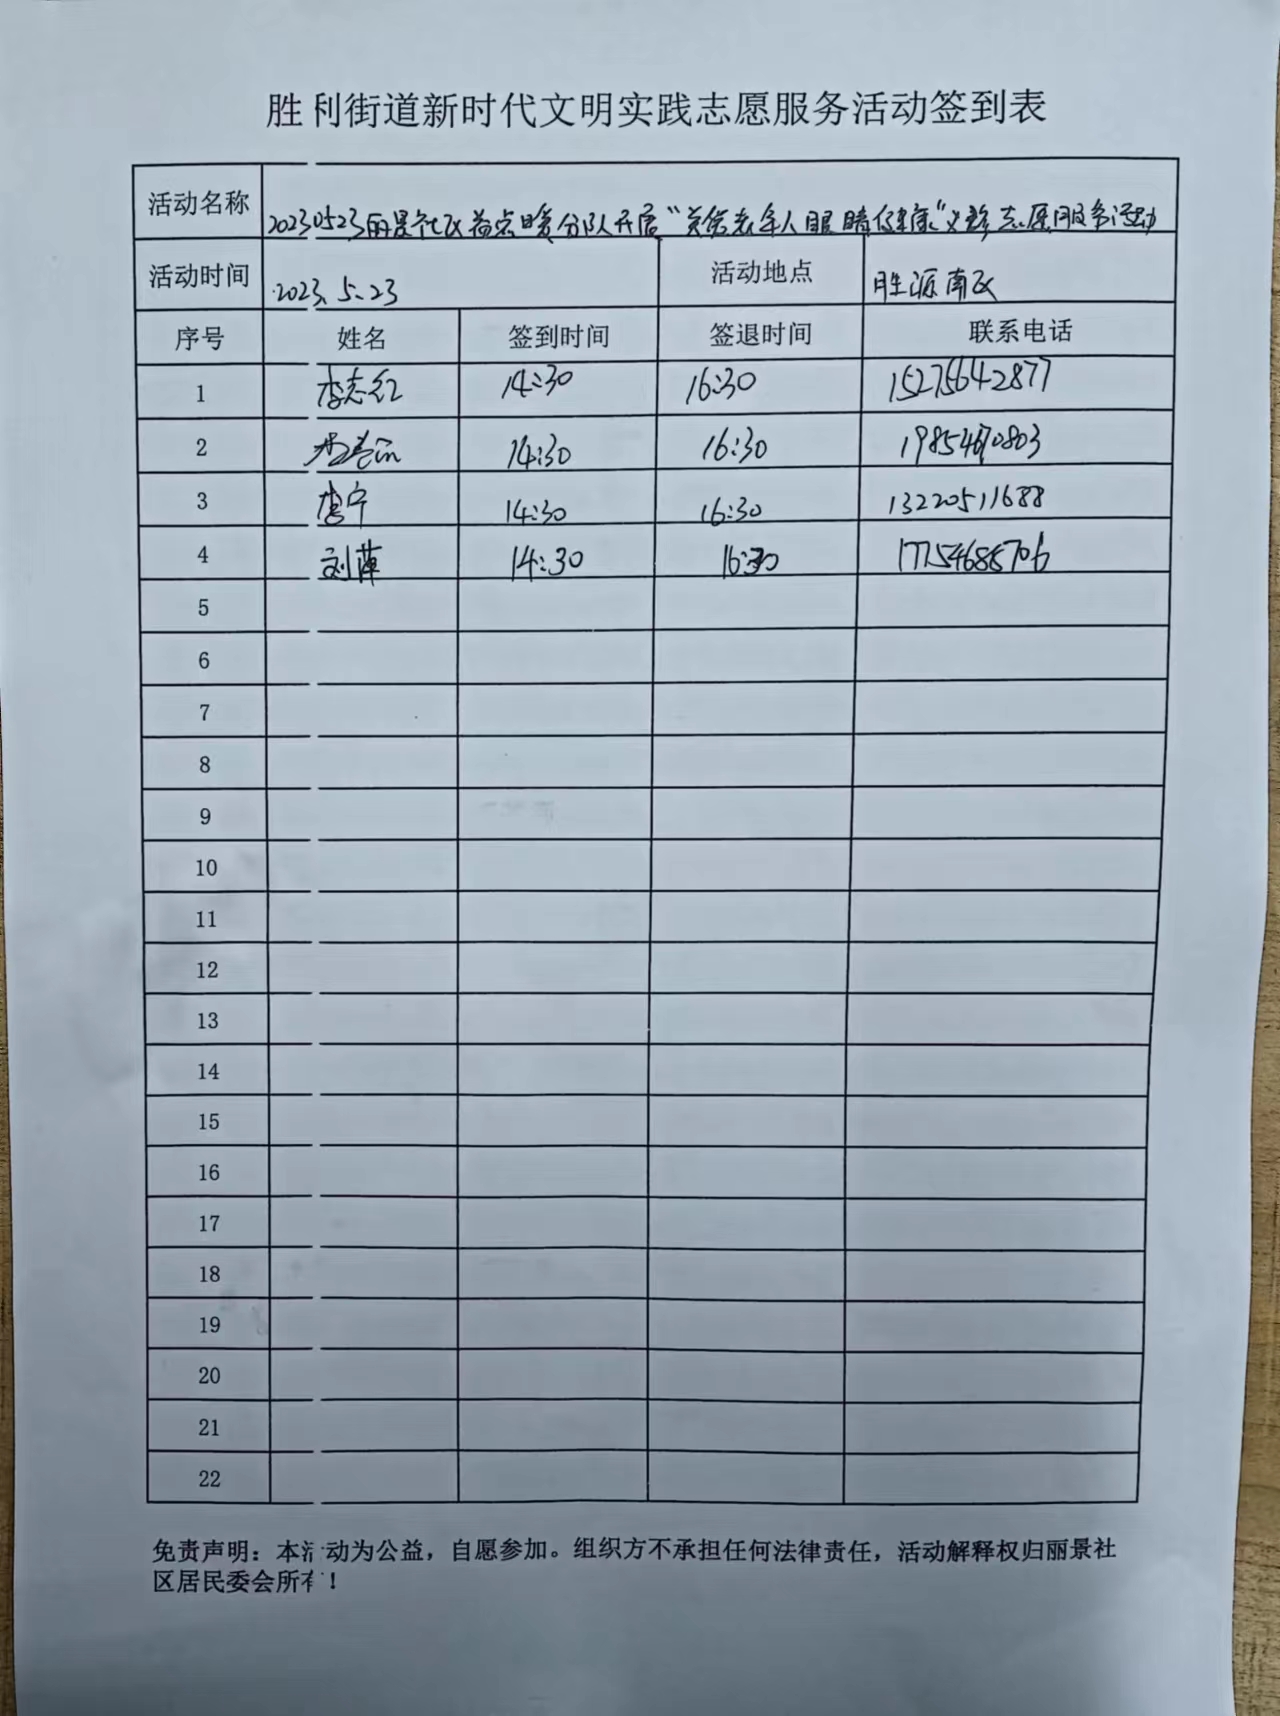 胜利街道新时代文明实践志愿服务活动签到表
活动名称 20230523丽景社区益点暖分队开展“关信老年人眼睛健康”义诊志愿服务活动
活动时间 2023.5.23 活动地点 胜源南区
序号 姓名 签到时间 签退时间 联系电话
1 李志红 14:30 16:30 15275642877
2 14:30 16:30
3 李宁 14:30 16:30 13220511688
4 刘萍 14:30 16:30 17754685706
5
6
7
8
9
10
11
12
13
14
15
16
17
18
19
20
21
22
免责声明：本活动为公益，自愿参加。组织方不承担任何法律责任，活动解释权归丽景社
区居民委会所有！